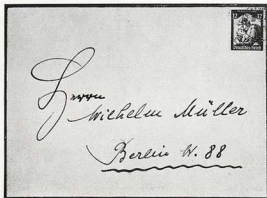 12 12
Deutsches Reich
Herrn
Wilhelm Müller
Berlin W. 88